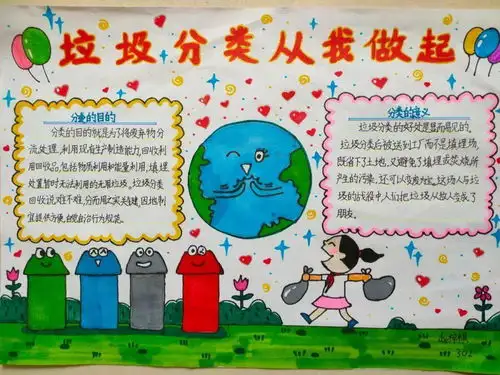 垃圾分类从我做起
分类的目的
分类的目的就是为了将废弃物分
流处理,利用现有生产制造能力,回收
利用回收品,包括物质利用和能量利用,填埋
处置暂时无法利用的无用垃圾。垃圾分类
回收说难不难,分而用之关键,因地制
宜提供方便,自觉自治行为规范。
分类的意义
垃圾分类的好处是显而易见的。
垃圾分类后被送到工厂而不是填埋场,
既省下了土地,又避免了填埋或焚烧所
产生的污染,还可以变废为宝。这场人与
垃圾的战役中人们把垃圾从敌人变成了
朋友。
302